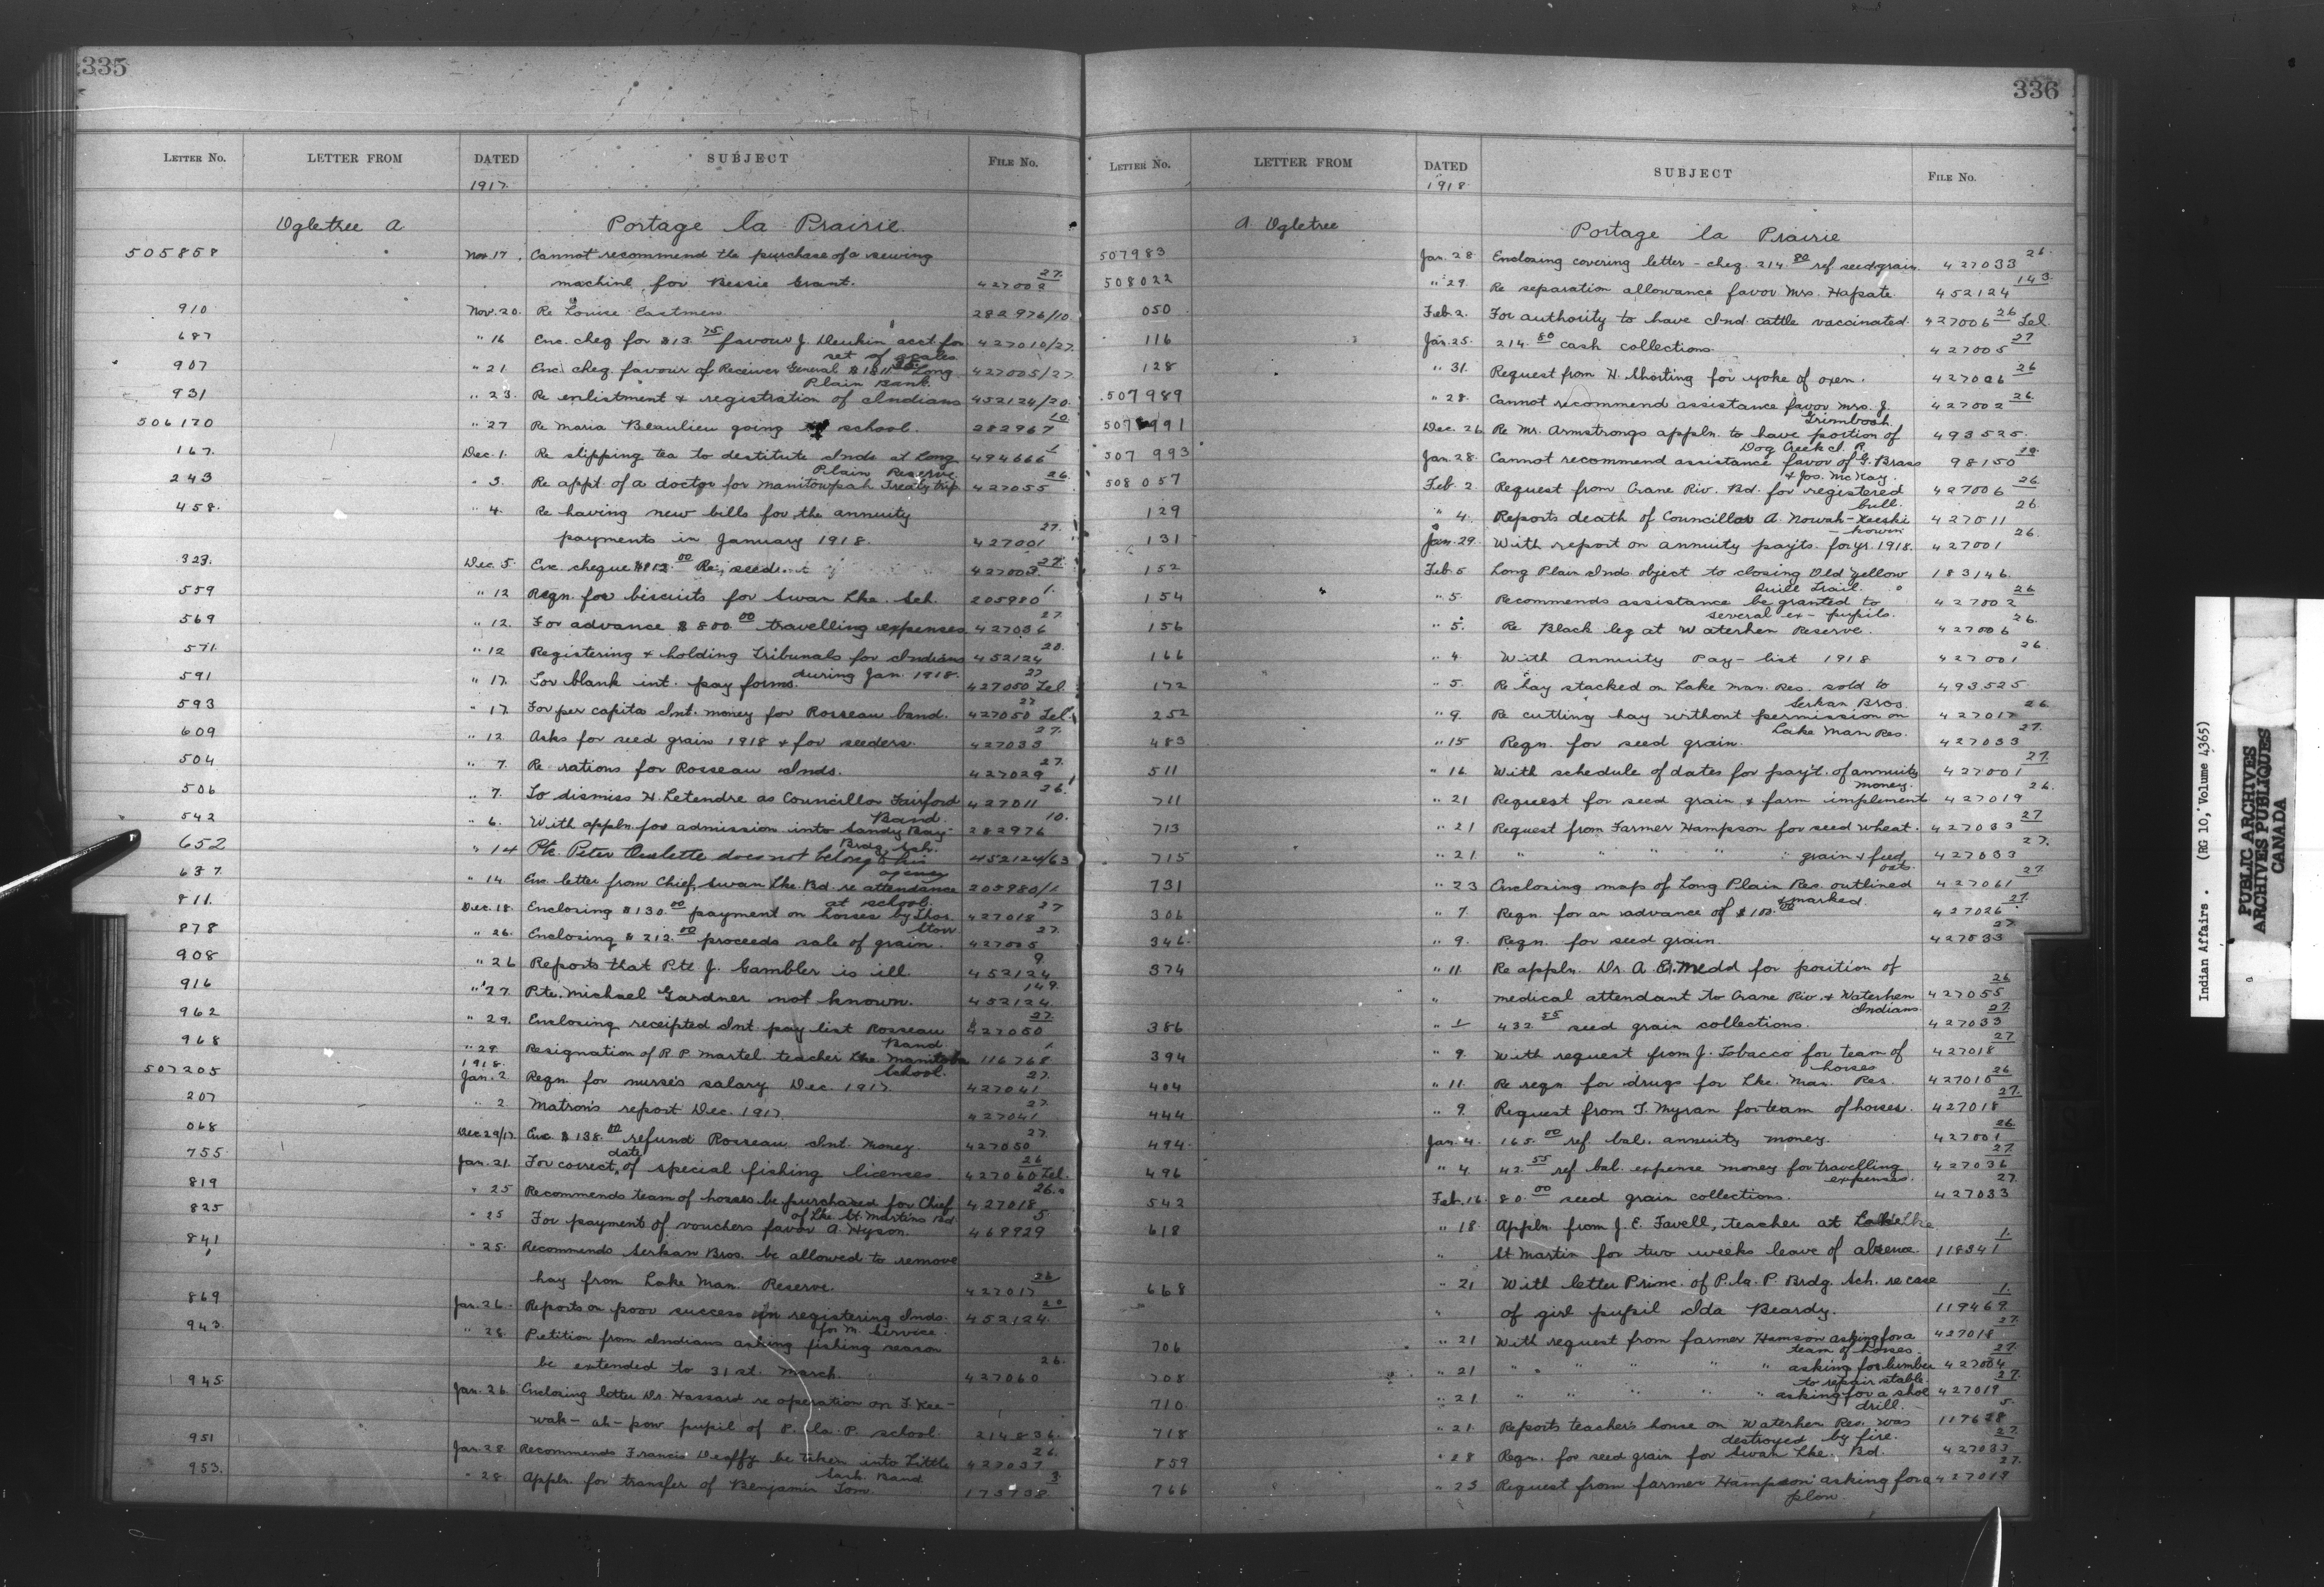 335
LETTER No. LETTER FROM DATED SUBJECT FILE No.
1917
Ogletree A Portage la Prairie.
505858 Nov. 17 Cannot recommend the purchase of a sewing
machine for Bessie Grant. 427002 27
910 Nov. 20. Re Louise Eastman 282976/10
687 " 16 Enc. cheq for $13.75 favour J. acct. for 427010/27
set of scales
907 " 21 Enc cheq. favour of Receiver General Long 427005/27
Plain Band.
931 " 23. Re enlistment & registration of Indians 452124/20.
506170 " 27 Re Maria Beaulieu going school. 282967 10
167. Dec. 1. Re slipping tea to destitute Inds at Long 494666 1
Plain Reserve
243 " 3. Re appt. of a doctor for Manitowpah Treaty trip 427055 26
458. " 4. Re having new bills for the annuity
payments in January 1918. 427001 27.
323. Dec. 5. Enc. cheque $112.00 Re, seed 427003 27.
559 " 12 Reqn. for biscuits for Swan Lke. Sch. 205980 1.
569 " 12. For advance $800.00 travelling expenses 427036 27
571. " 12 Registering & holding tribunals for Indians 452124 20.
during Jan. 1918.
591 " 17. For blank int. pay forms. 427050 Tel 27
593 " 17 For per capita Int. money for Rosseau band. 427050 Tel. 27
609 " 12 Asks for seed grain 1918 & for seeders. 427033 27.
504 " 7. Re rations for Rosseau Inds. 427029 27.
506 " 7. To dismiss H. Letendre as Councillor Fairford 427011 26.
Band.
542 " 6. With appln. for admission into Sandy Bay 282976 10.
Brdg. Sch.
652 " 14 Pte. Peter Oulette does not belong to his 452124/63
agency
637. " 14. Enc letter from Chief, Swan Lke. Bd. re attendance 205980/1
at school.
811. Dec. 18. Enclosing $130.00 payment on horses by Thos. 427018 27
Stow
878 " 26. Enclosing $212.00 proceeds sale of grain. 427005 27.
908 " 26 Reports that Pte. J. Gambler is ill. 452124 9
916 " 27. Pte. Michael Gardner not known. 452124 149.
962 " 29. Enclosing receipted Int. pay list Rosseau 427050 27.
Band.
968 " 29. Resignation of R. P. Martel teacher Lke Manitoba 116768 1.
1918. School.
507205 Jan. 2 Reqn. for nurse's salary Dec. 1917 427041 27.
207 " 2 Matron's report Dec. 1917 427041 27.
068 Dec 29/17. Enc. $138.00 refund Rosseau Int. Money. 427050 27.
date
755 Jan. 21. For correct of special fishing licenses. 427060 Tel. 26
819 " 25 Recommends team of horses be purchased for Chief 427018 26.
of Lke. St. Martins Bd
825 " 25 For payment of vouchers favor A Hyson. 469929 5
841 " 25. Recommends Serkan Bros. be allowed to remove
hay from Lake Man. Reserve. 427017 26
869 Jan. 26. Reports on poor success in registering Inds. 452124. 20
for M. Service.
943. " 28 Petition from Indians asking fishing season
be extended to 31 st. March. 427060 26.
945 Jan. 26. Enclosing letter Dr. Hassard re operation on T. Kee-
wah-ah-pow pupil of P. la. P. school. 214836.
951 Jan. 28 Recommends Francis Deaffy be taken into Little 427037 26.
Sask. Band
953. " 28. Appln. for transfer of Benjamin Tom. 173738 3
336
LETTER No. LETTER FROM DATED SUBJECT FILE No.
1918
A. Ogletree Portage la Prairie
507983 Jan. 28 Enclosing covering letter - cheq. 214.80 ref. seed grain. 427033 26.
508022 " 29. Re separation allowance favor Mrs. Hapate. 452124 143.
050 Feb. 2. For authority to have Ind. cattle vaccinated. 427006 26 Tel.
116 Jan. 25. 214.80 cash collections. 427005 27
128 " 31. Request from H. Shorting for yoke of oxen. 427026 26
507989 " 28. Cannot recommend assistance favor Mrs. J. 427002 26.
507991 Dec. 26 Re Mr. Armstrongs appln. to have portion of 493525.
Dog Creek I. R.
507993 Jan. 28. Cannot recommend assistance favor of G. Brass 98150
& Jos. McKay.
508057 Feb. 2 Request from Crane Riv. Bd. for registered 427006 26
bull.
129 " 4. Reports death of Councillor A. Nowah-Keeshi 427011 26.
-kowin
131 Jan. 29. With report on annuity pay'ts. for yr. 1918. 427001 26.
152 Feb. 5 Long Plain Inds. object to closing Old Yellow 183146.
Quill Trail.
154 " 5. Recommends assistance be granted to 427002 26
several ex-pupils
156 " 5. Re Black leg at Waterhen Reserve. 427006 26.
166 " 4. With Annuity Pay-list 1918 427001 26.
172 " 5. Re hay stacked on Lake Man. Res. sold to 493525
Serkan Bros.
252 " 9. Re cutting hay without permission on 427017 26.
Lake Man Res.
483 " 15 Reqn. for seed grain. 427033 27.
511 " 16. With schedule of dates for pay't. of annuity 427001 27.
money.
711 " 21 Request for seed grain & farm implement 427019 26.
713 " 21 Request from Farmer Hampson for seed wheat. 427033 27
715 " 21. " " " " " grain & feed 427033 27.
oats.
731 " 23 Enclosing map of Long Plain Res. outlined 427061 27.
& marked.
306 " 7. Reqn. for an advance of $100.00 427026 27.
346. " 9. Reqn. for seed grain. 427033 27
374 " 11. Re appln. Dr. A. E. Medd for position of
" medical attendant to Crane Riv. & Waterhen 427055 26
Indians.
386 " 1 432.55 seed grain collections. 427033 27.
394 " 9. With request from J. Tobacco for team of 427018 27
horses
404 " 11. Re reqn. for drugs for Lke. Man. Res. 427010 26
444 " 9. Request from T. Myran for team of horses. 427018 27.
494. Jan. 4. 165.00 ref. bal. annuity money. 427001 26
496 " 4 42.55 ref bal. expense money for travelling 427036 27.
expenses.
542 Feb. 16. 80.00 seed grain collections. 427033 27.
618 " 18 Appln. from J. E. Favell, teacher at Lke
" St Martin for two weeks leave of absence. 118341 1.
668 " 21 With letter Princ. of P. la. P. Brdg. Sch. re case
" of girl pupil Ida Beardy. 119469 1.
706 " 21 With request from farmer Hamson asking for a 427018 27.
team of horses.
708 " 21 " " " " " " asking for lumber 427004 27.
to repair stable.
710. " 21 " " " " asking for a shoe 427019 27.
drill.
718 " 21. Reports teacher's house on Waterhen Res. was 117628 5.
destroyed by fire.
859 " 28 Reqn. for seed grain for Swan Lke. Bd. 427033 27.
766 " 23 Request from farmer Hampson asking for a 427019 27.
plow
Indian Affairs. (RG 10, Volume 4365)
PUBLIC ARCHIVES
ARCHIVES PUBLIQUES
CANADA